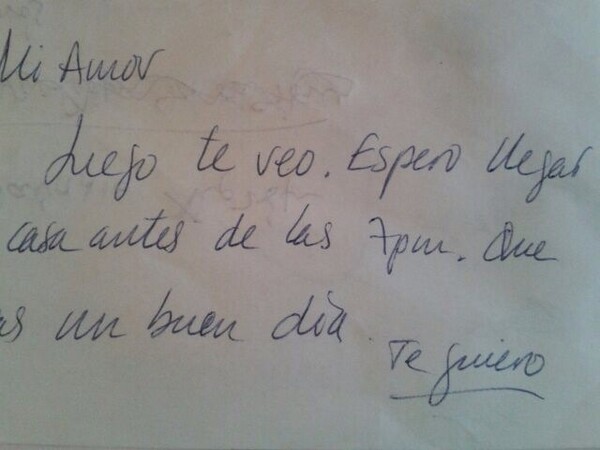 Mi Amor
Luego te veo. Espero llegar
casa antes de las 7pm. Que
as un buen día.
Te quiero